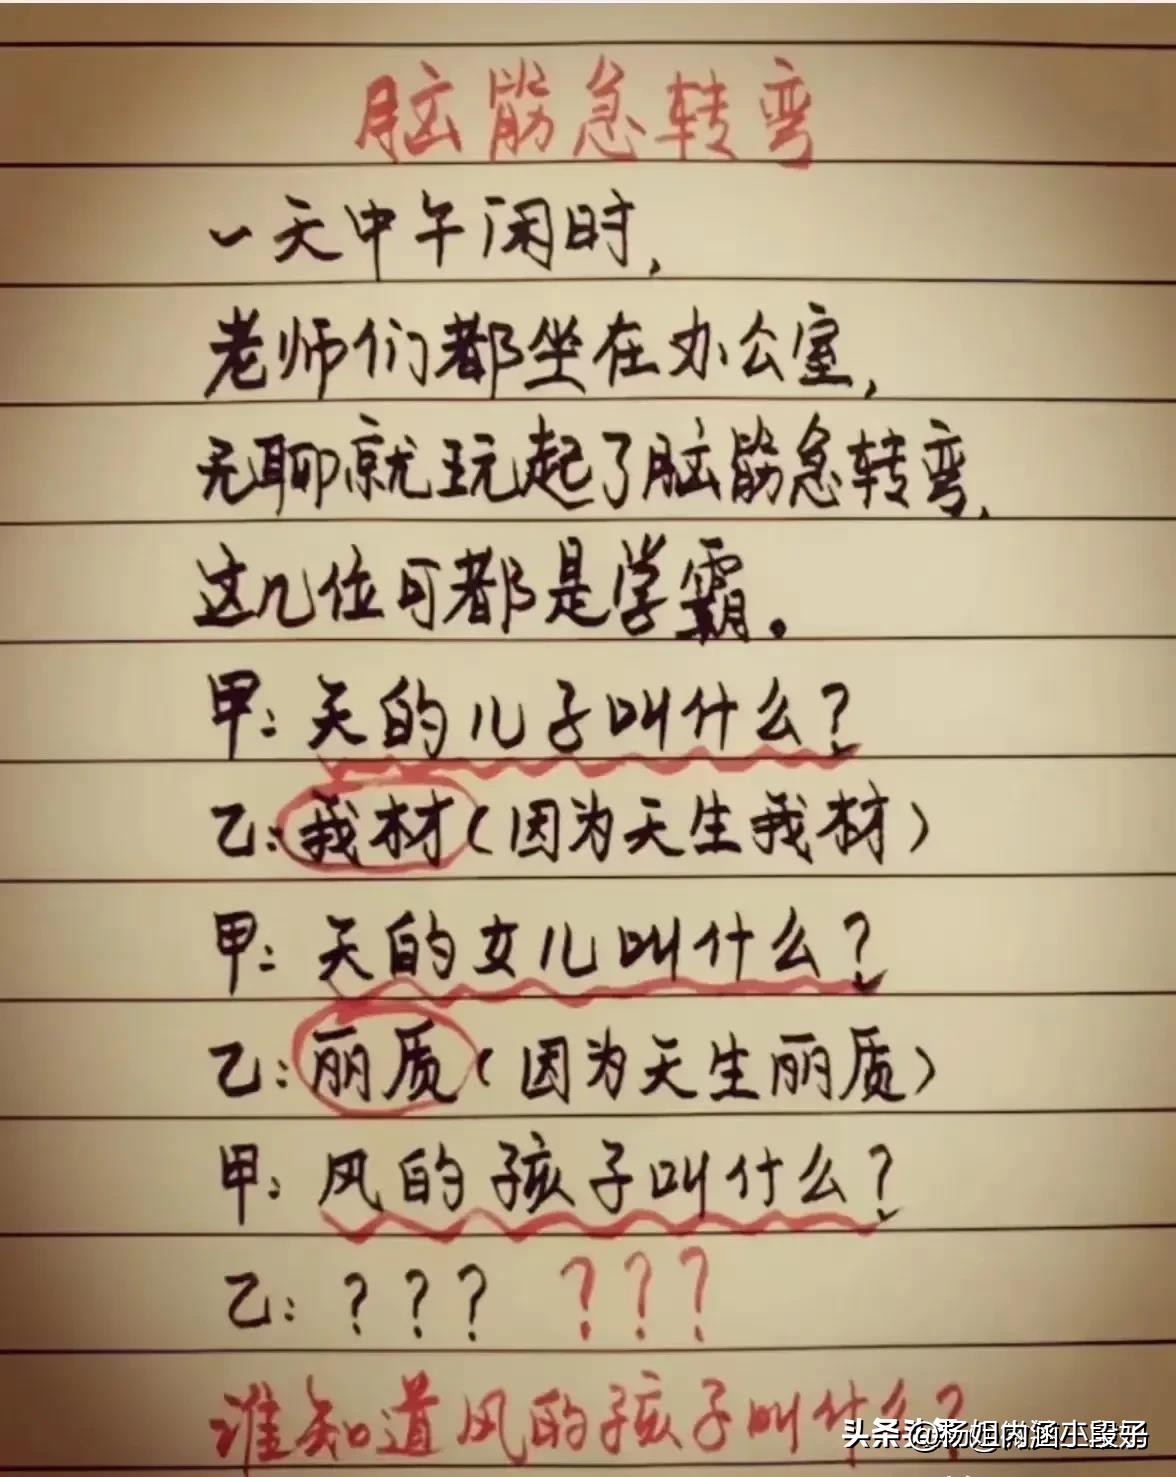 脑筋急转弯
一天中午闲时,
老师们都坐在办公室,
无聊就玩起了脑筋急转弯,
这几位可都是学霸。
甲:天的儿子叫什么?
乙:我材(因为天生我材)
甲:天的女儿叫什么?
乙:丽质(因为天生丽质)
甲:风的孩子叫什么?
乙:??? ???
谁知道风的孩子叫什么?
头条 @杨姐内涵小段子